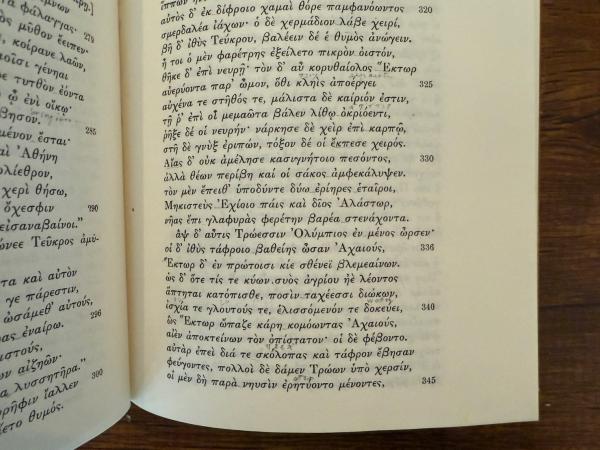 φαλαγγας·
279
μῦθον ἔειπεν·
κοίρανε λαῶν,
γένηαι
τυτθὸν ἐόντα
ᾧ ἐνὶ οἴκῳ·
βησον.
285
μένον ἔσται·
αὶ Ἀθήνη
ολίεθρον,
χερὶ θήσω,
ὄχεσφιν
290
εἰσαναβαίνοι."
ώνεε Τεῦκρος ἀμύ-
τα καὶ αὐτὸν
γε πάρεστιν,
ὠσάμεθ' αὐτούς,
296
ας ἐναίρω.
ιστούς,
αἰζηῶν·
α λυσσητῆρα."
300
ρῆφιν ἴαλλεν
ίετο θυμός.
αὐτὸς δ' ἐκ δίφροιο χαμαὶ θόρε παμφανόωντος 320
σμερδαλέα ἰάχων· ὁ δὲ χερμάδιον λάβε χειρί,
βῆ δ' ἰθὺς Τεύκρου, βαλέειν δέ ἑ θυμὸς ἀνώγειν.
ἤ τοι ὁ μὲν φαρέτρης ἐξείλετο πικρὸν ὀιστόν,
θῆκε δ' ἐπὶ νευρῇ· τὸν δ' αὖ κορυθαίολος Ἕκτωρ
αὐερύοντα παρ' ὦμον, ὅθι κληῒς ἀποέργει 325
αὐχένα τε στῆθός τε, μάλιστα δὲ καίριόν ἐστιν,
τῇ ῥ' ἐπὶ οἷ μεμαῶτα βάλεν λίθῳ ὀκριόεντι,
ῥῆξε δέ οἱ νευρήν· νάρκησε δὲ χεὶρ ἐπὶ καρπῷ,
στῆ δὲ γνὺξ ἐριπών, τόξον δέ οἱ ἔκπεσε χειρός.
Αἴας δ' οὐκ ἀμέλησε κασιγνήτοιο πεσόντος, 330
ἀλλὰ θέων περίβη καί οἱ σάκος ἀμφεκάλυψεν.
τὸν μὲν ἔπειθ' ὑποδύντε δύω ἐρίηρες ἑταῖροι,
Μηκιστεὺς Ἐχίοιο πάις καὶ δῖος Ἀλάστωρ,
νῆας ἔπι γλαφυρὰς φερέτην βαρέα στενάχοντα.
ἂψ δ' αὖτις Τρώεσσιν Ὀλύμπιος ἐν μένος ὦρσεν·
οἱ δ' ἰθὺς τάφροιο βαθείης ὦσαν Ἀχαιούς, 336
Ἕκτωρ δ' ἐν πρώτοισι κίε σθένεϊ βλεμεαίνων.
ὡς δ' ὅτε τίς τε κύων συὸς ἀγρίου ἠὲ λέοντος
ἅπτηται κατόπισθε, ποσὶν ταχέεσσι διώκων,
ἰσχία τε γλουτούς τε, ἑλισσόμενόν τε δοκεύει, 340
ὣς Ἕκτωρ ὤπαζε κάρη κομόωντας Ἀχαιούς,
αἰὲν ἀποκτείνων τὸν ὀπίστατον· οἱ δὲ φέβοντο.
αὐτὰρ ἐπεὶ διά τε σκόλοπας καὶ τάφρον ἔβησαν
φεύγοντες, πολλοὶ δὲ δάμεν Τρώων ὑπὸ χερσίν,
οἱ μὲν δὴ παρὰ νηυσὶν ἐρητύοντο μένοντες, 345